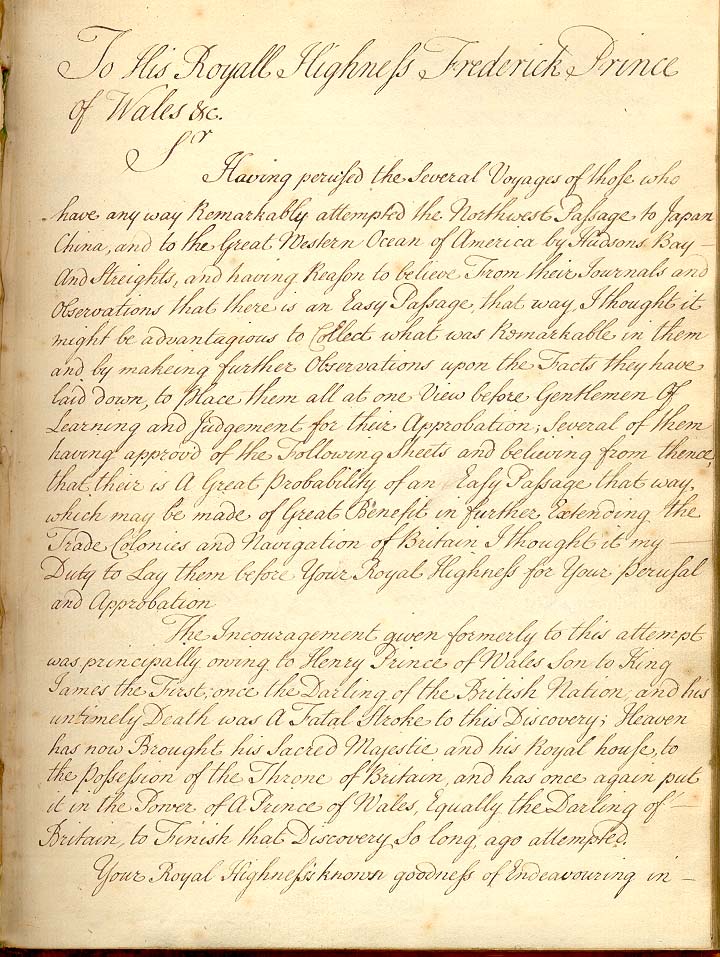 To His Royall Highneſs Frederick Prince
of Wales &c.
Sr
Having perused the Several Voyages of those who
have any way Remarkably attempted the Northwest Paſsage to Japan
China, and to the Great Western Ocean of America by Hudsons Bay —
And Streights, and having Reason to believe From their Journals and
Observations that there is an Easy Paſsage, that way, I thought it
might be advantagious to Collect what was Remarkable in them
and by makeing further Observations upon the Facts they have
laid down, to Place them all at one View before Gentlemen Of
Learning and Judgement for their Approbation; Several of them
having approv'd of the Following Sheets and believing from thence,
that their is A Great Probability of an Easy Paſsage that way,
which may be made of Great Benefit in further Extending the
Trade Colonies and Navigation of Britain I thought it my —
Duty to Lay them before Your Royal Highneſs for Your Perusal
and Approbation
The Incouragement given formerly to this attempt
was principally owing to Henry Prince of Wales Son to King
James the First, once the Darling of the British Nation, and his
untimely Death was A Fatal Stroke to this Discovery; Heaven
has now Brought his Sacred Majestie and his Royal house, to
the Poſsession of the Throne of Britain, and has once again put
it in the Power of A Prince of Wales, Equally the Darling of —
Britain, to Finish that Discovery So long ago attempted.
Your Royal Highneſs's known goodneſs of Endeavouring in —